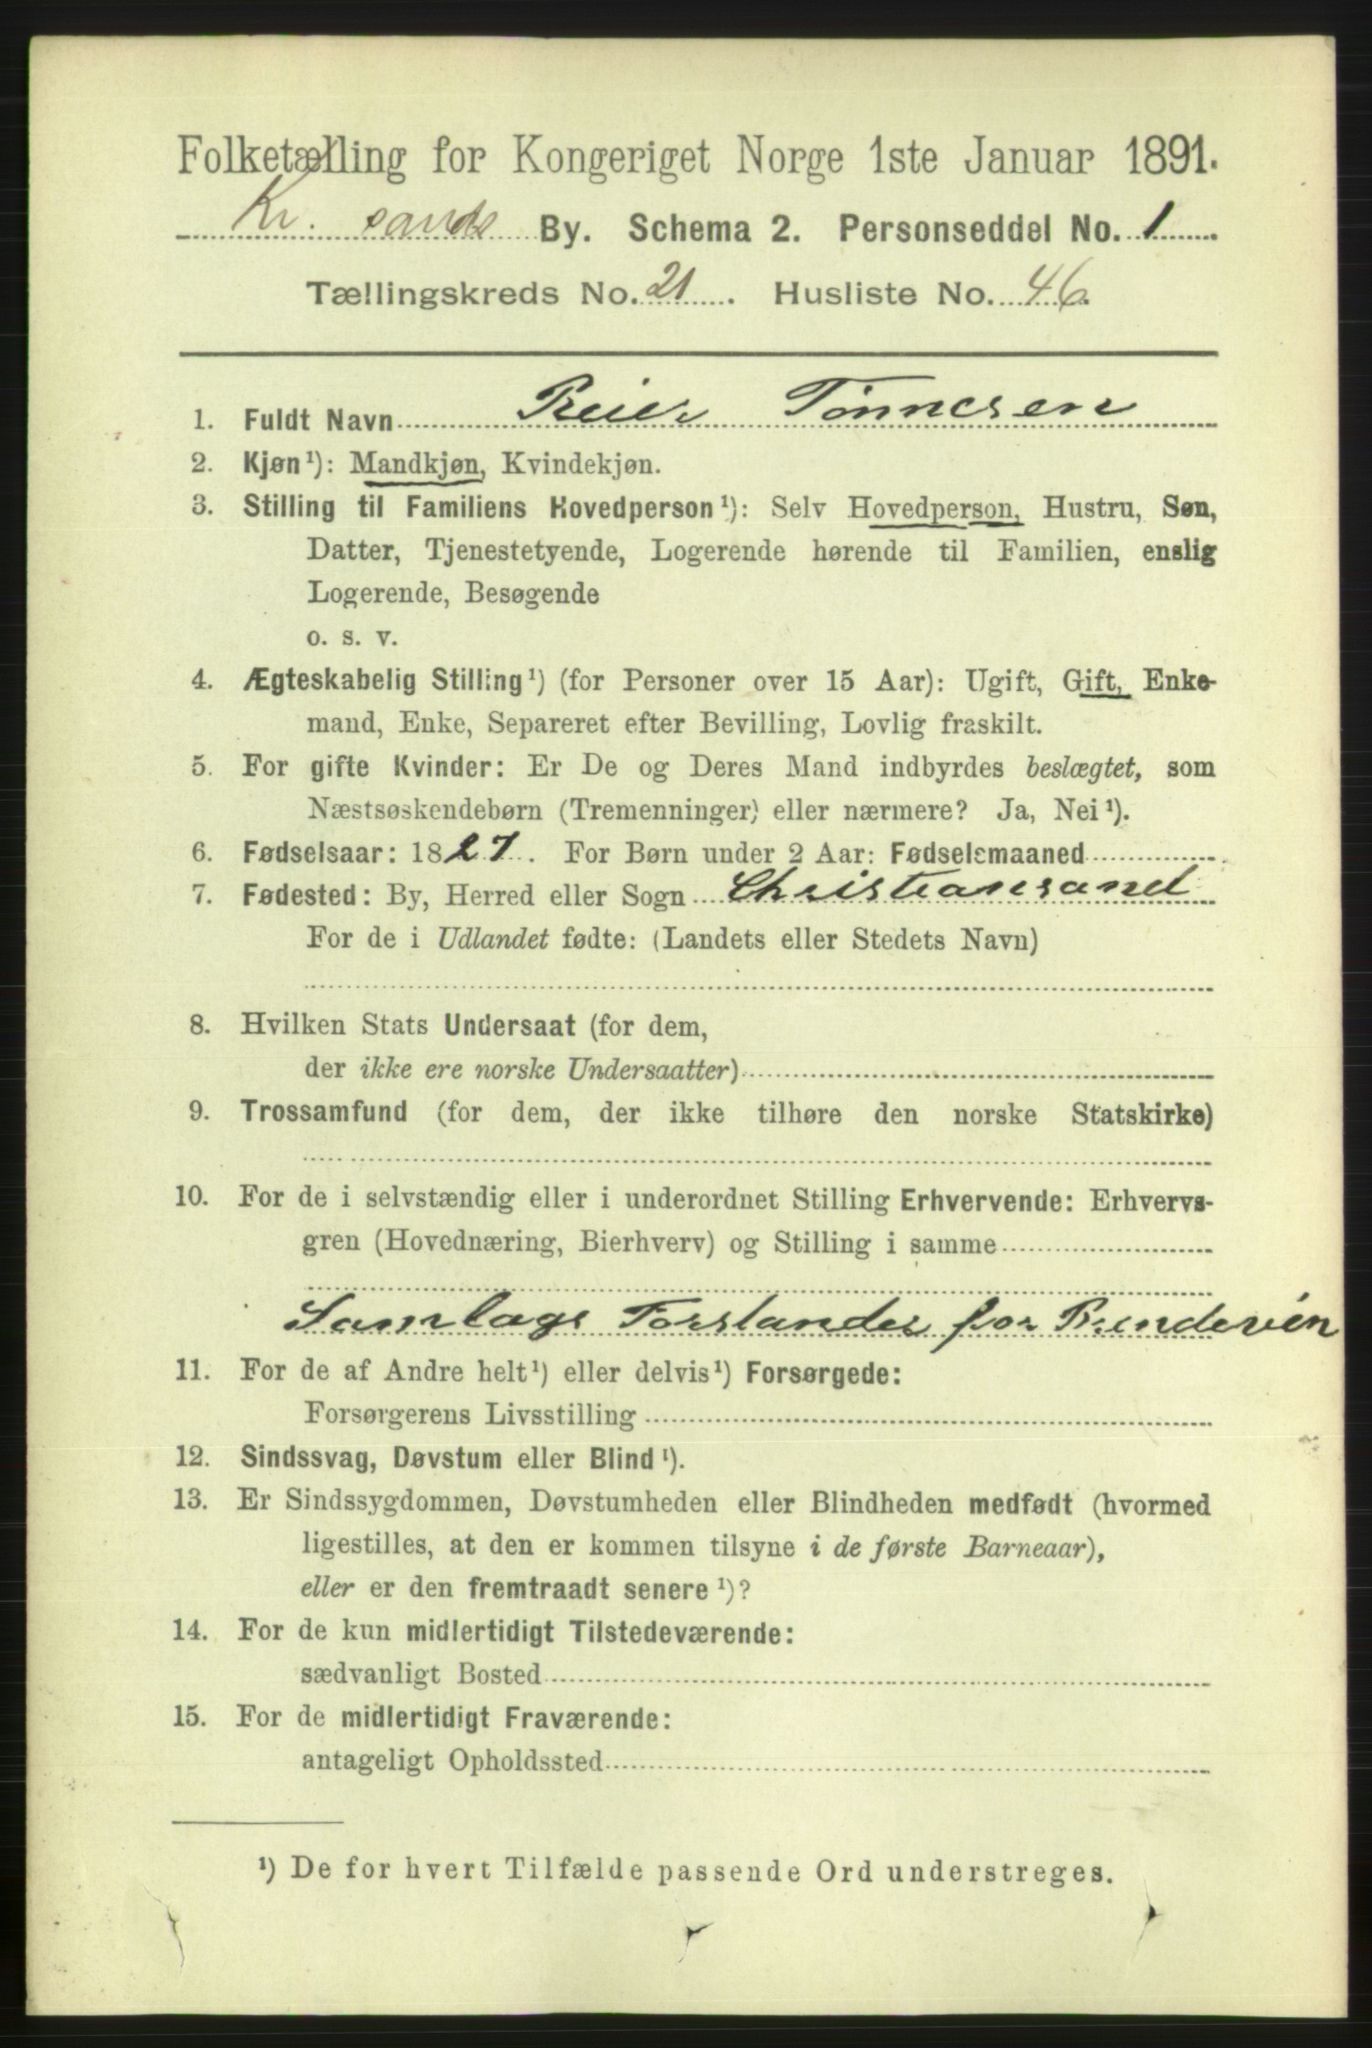 Folketælling for Kongeriget Norge 1ste Januar 1891.
Kr. sands By. Schema 2. Personseddel No. 1
Tællingskreds No. 21. Husliste No. 46.
1. Fuldt Navn Reier Tønnesen
2. Kjøn¹): Mandkjøn, Kvindekjøn.
3. Stilling til Familiens Hovedperson¹): Selv Hovedperson, Hustru, Søn,
Datter, Tjenestetyende, Logerende hørende til Familien, enslig
Logerende, Besøgende
o. s. v.
4. Ægteskabelig Stilling¹) (for Personer over 15 Aar): Ugift, Gift, Enke-
mand, Enke, Separeret efter Bevilling, Lovlig fraskilt.
5. For gifte Kvinder: Er De og Deres Mand indbyrdes beslægtet, som
Næstsøskendebørn (Tremenninger) eller nærmere? Ja, Nei¹).
6. Fødselsaar: 1827. For Børn under 2 Aar: Fødselsmaaned
7. Fødested: By, Herred eller Sogn Christiansand
For de i Udlandet fødte: (Landets eller Stedets Navn)
8. Hvilken Stats Undersaat (for dem,
der ikke ere norske Undersaatter)
9. Trossamfund (for dem, der ikke tilhøre den norske Statskirke)
10. For de i selvstændig eller i underordnet Stilling Erhvervende: Erhvervs-
gren (Hovednæring, Bierhverv) og Stilling i samme
Samlags Forstander for Brendevin
11. For de af Andre helt¹) eller delvis¹) Forsørgede:
Forsørgerens Livsstilling
12. Sindssvag, Døvstum eller Blind¹).
13. Er Sindssygdommen, Døvstumheden eller Blindheden medfødt (hvormed
ligestilles, at den er kommen tilsyne i de første Barneaar),
eller er den fremtraadt senere¹)?
14. For de kun midlertidigt Tilstedeværende:
sædvanligt Bosted
15. For de midlertidigt Fraværende:
antageligt Opholdssted
¹) De for hvert Tilfælde passende Ord understreges.